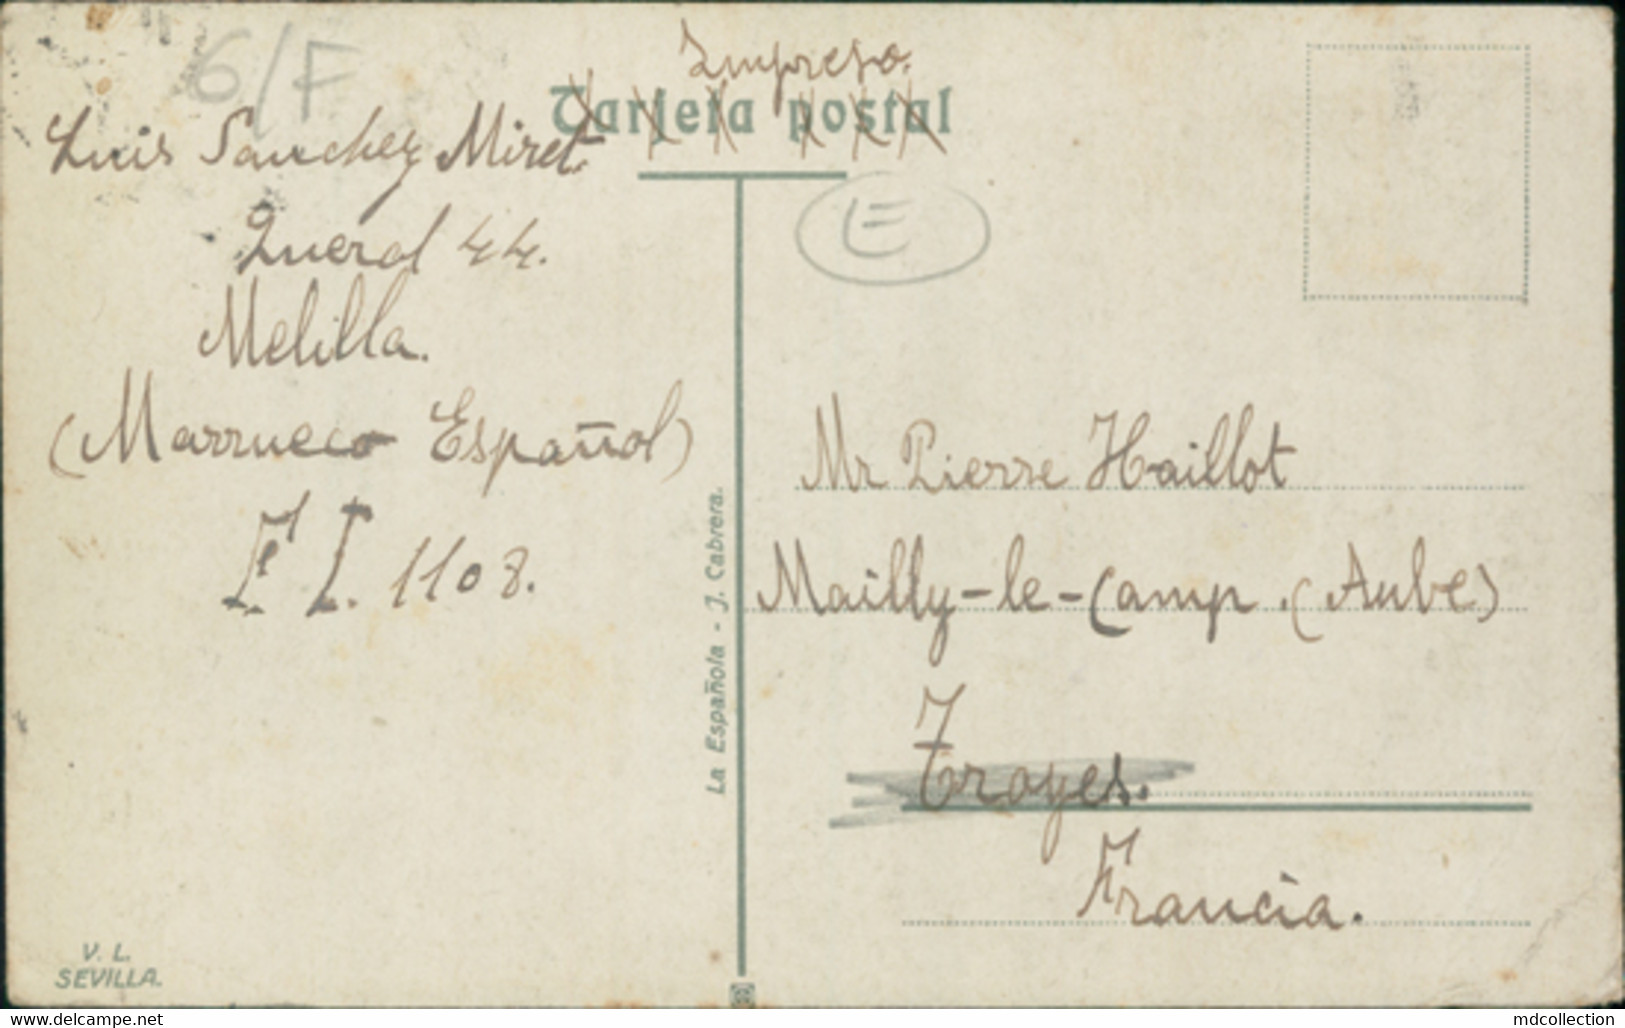 6/F
Impreso.
Tarjeta postal
Luis Sanchez Miret.
Querol 44.
Melilla.
(Marrueco Español)
E I. 1108.
E
Mr Pierre Haillot
Mailly-le-Camp. (Aube)
Troyes.
Francia.
La Española - J. Cabrera.
V. L.
SEVILLA.
www.delcampe.net
mdcollection